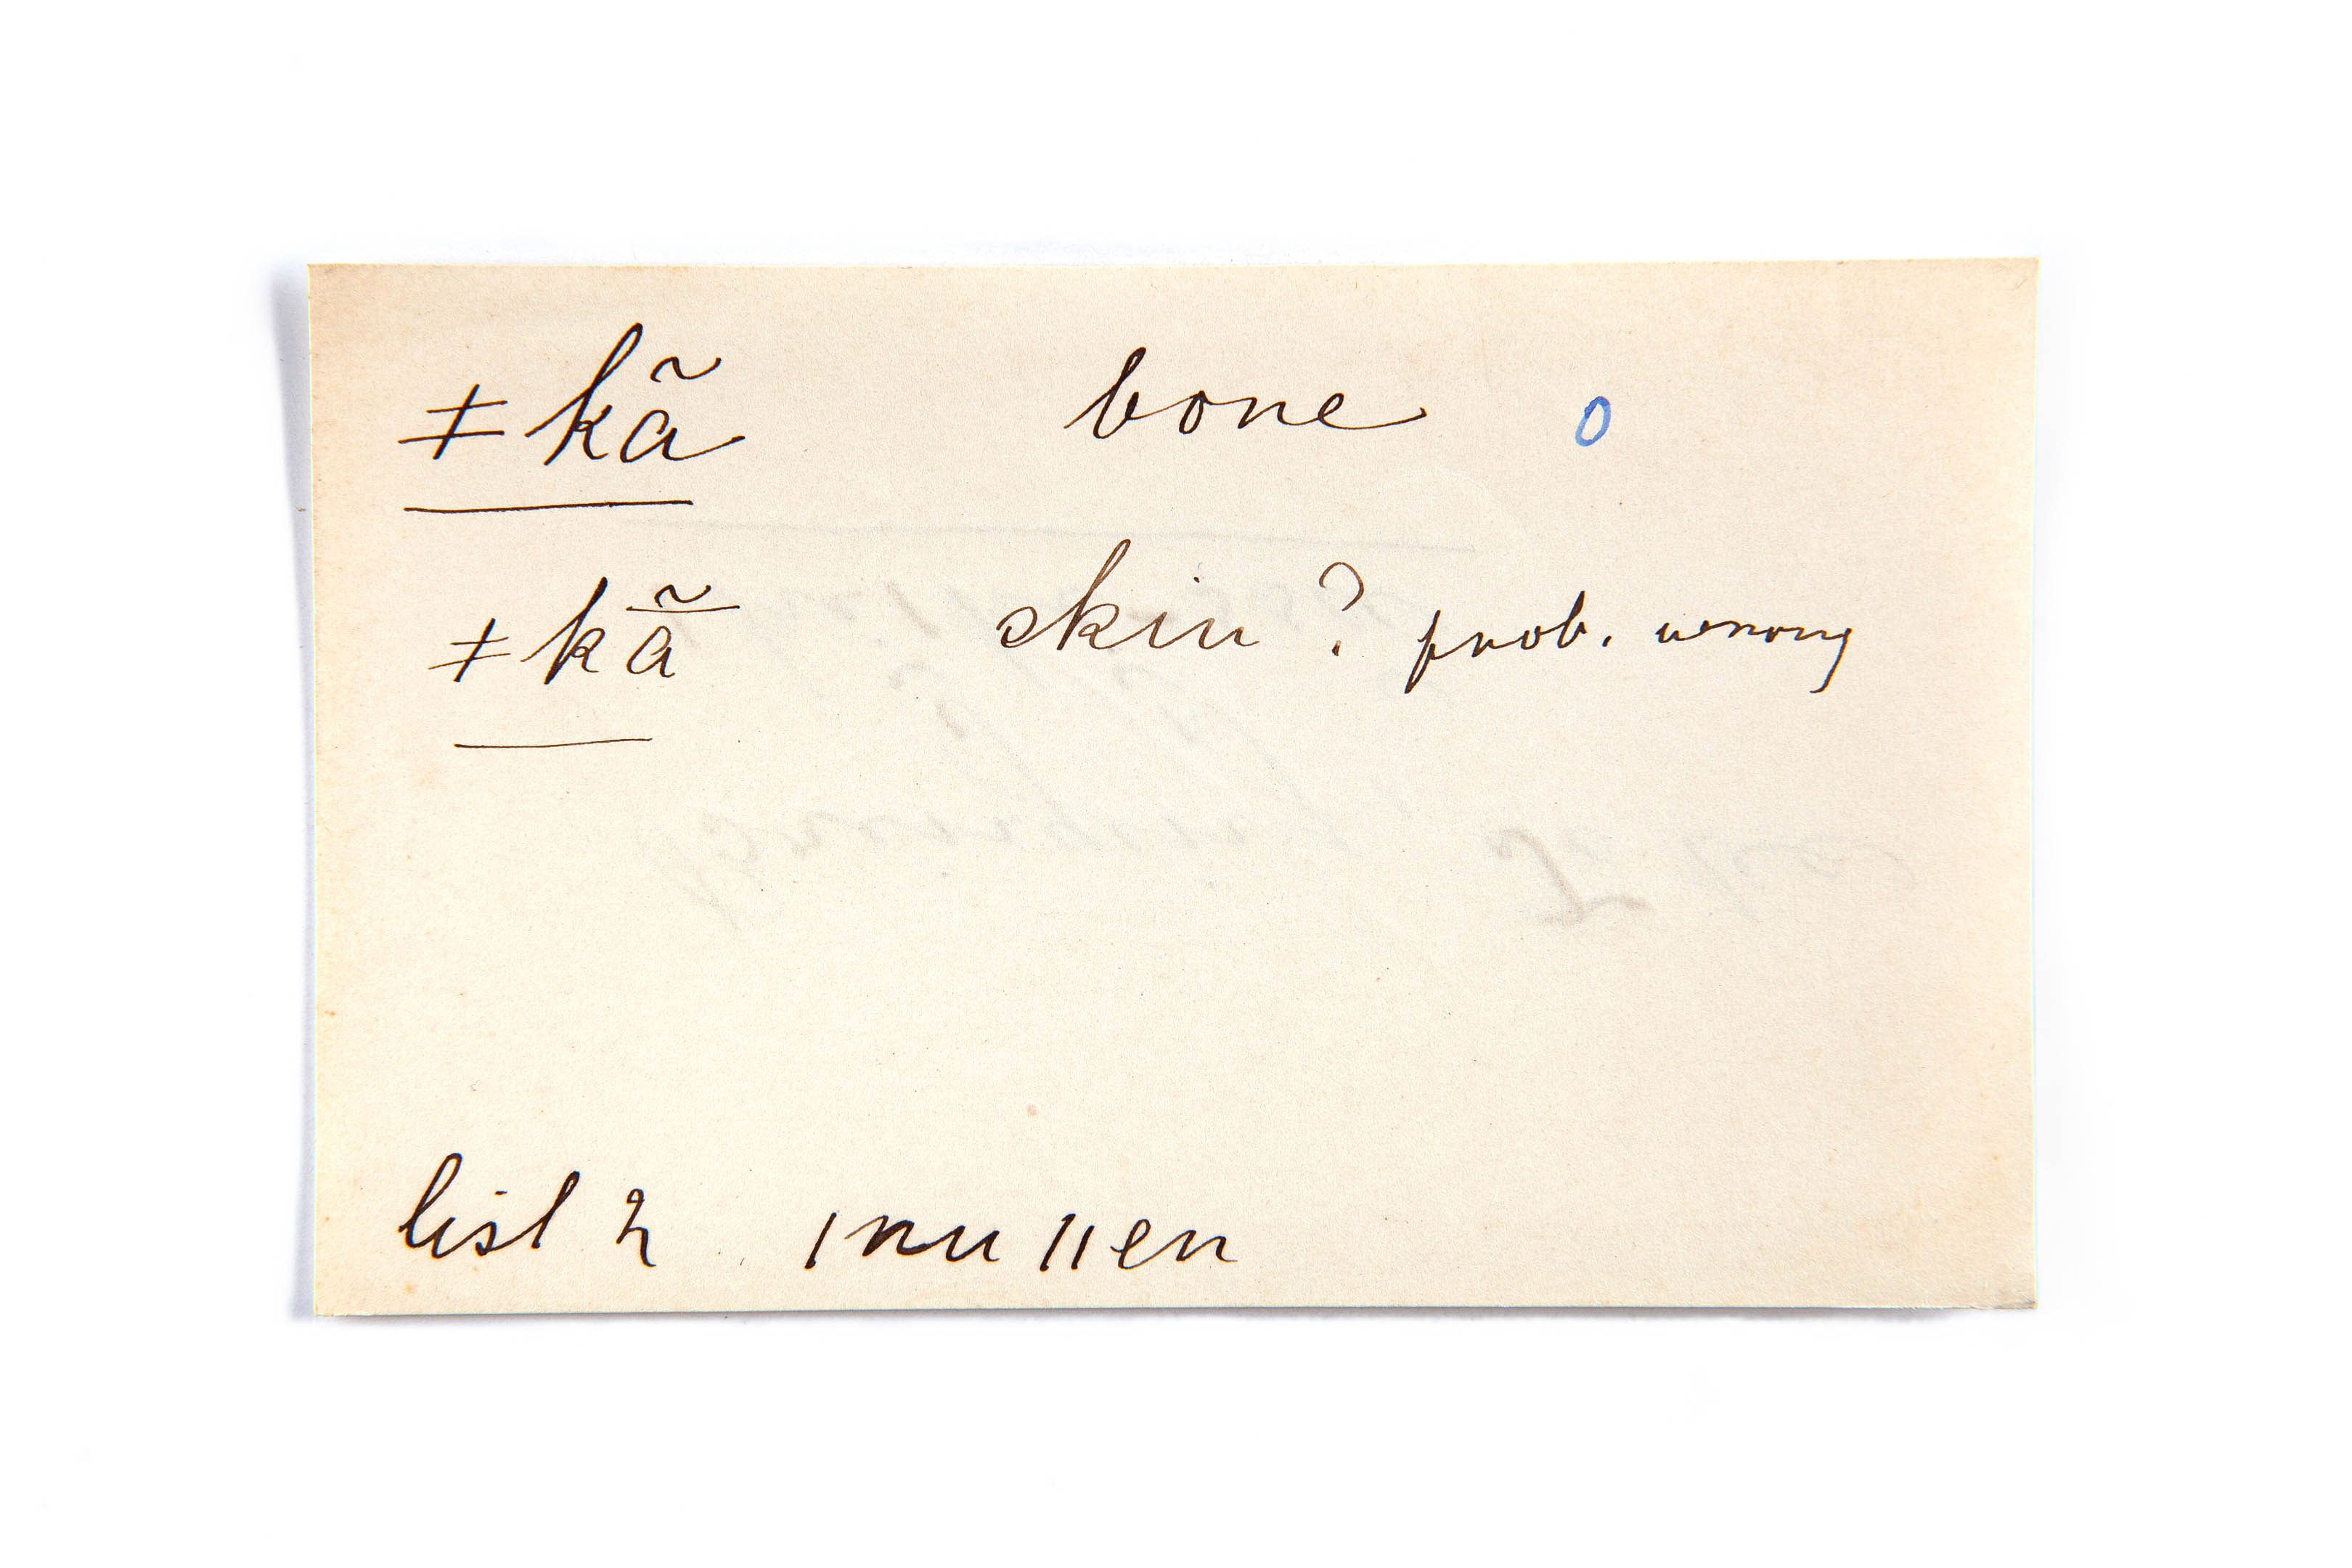 ǂkã bone o
ǂkã̄ skin ? prob. wrong
list 2 ǀnu ǁen